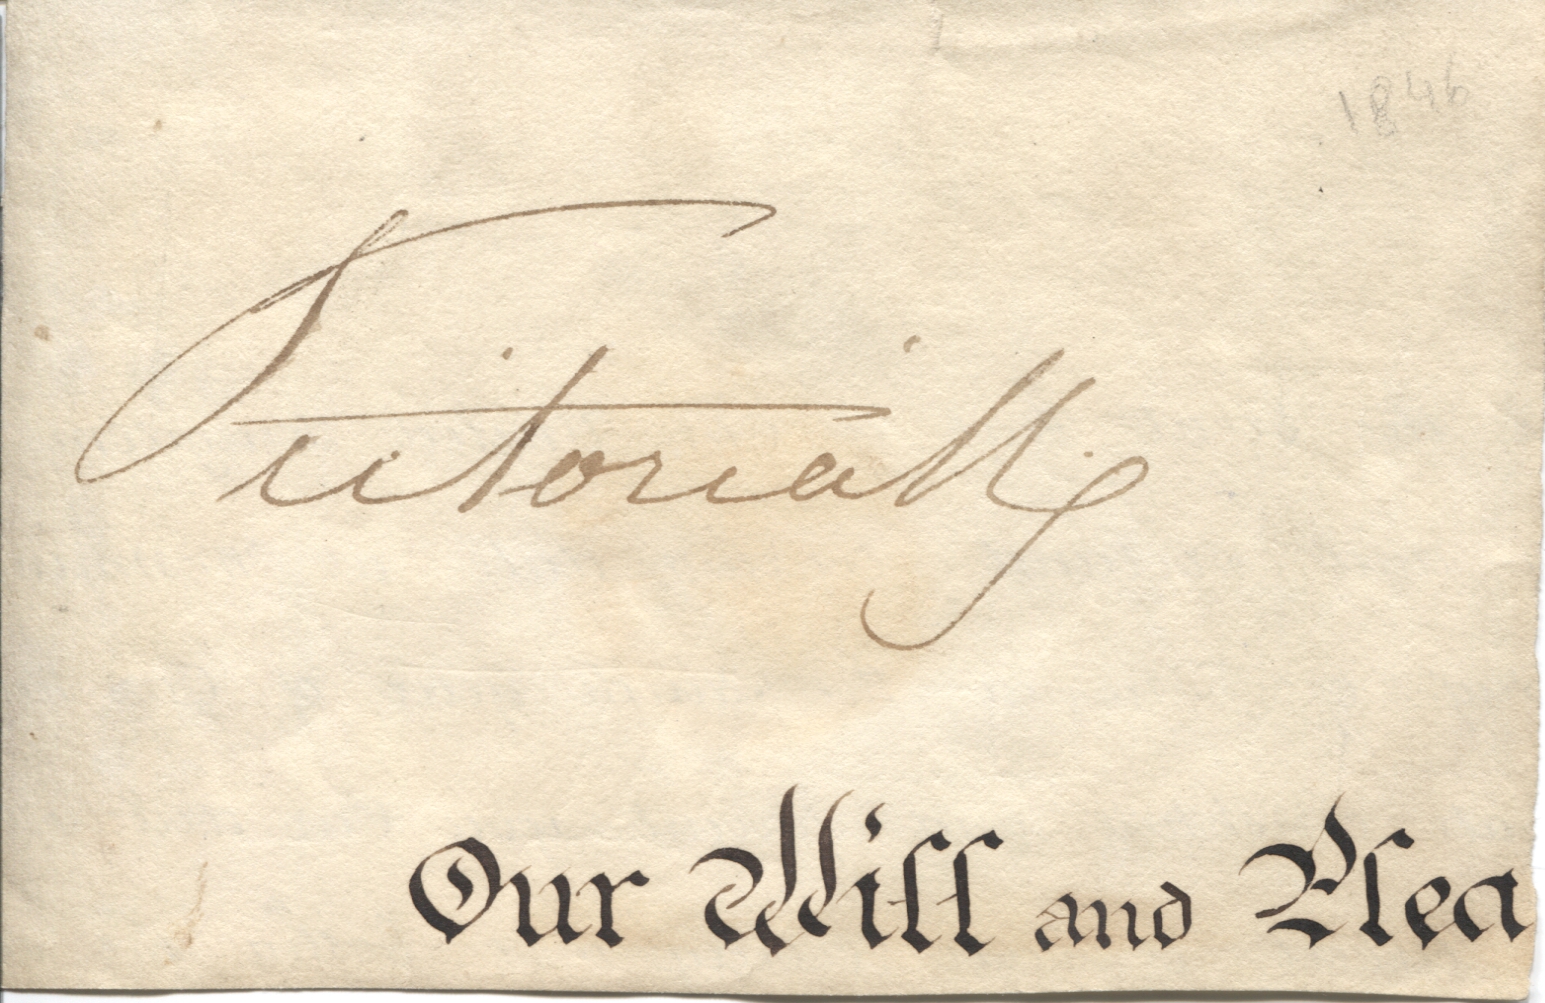 1846
Victoria R
Our Will and Plea